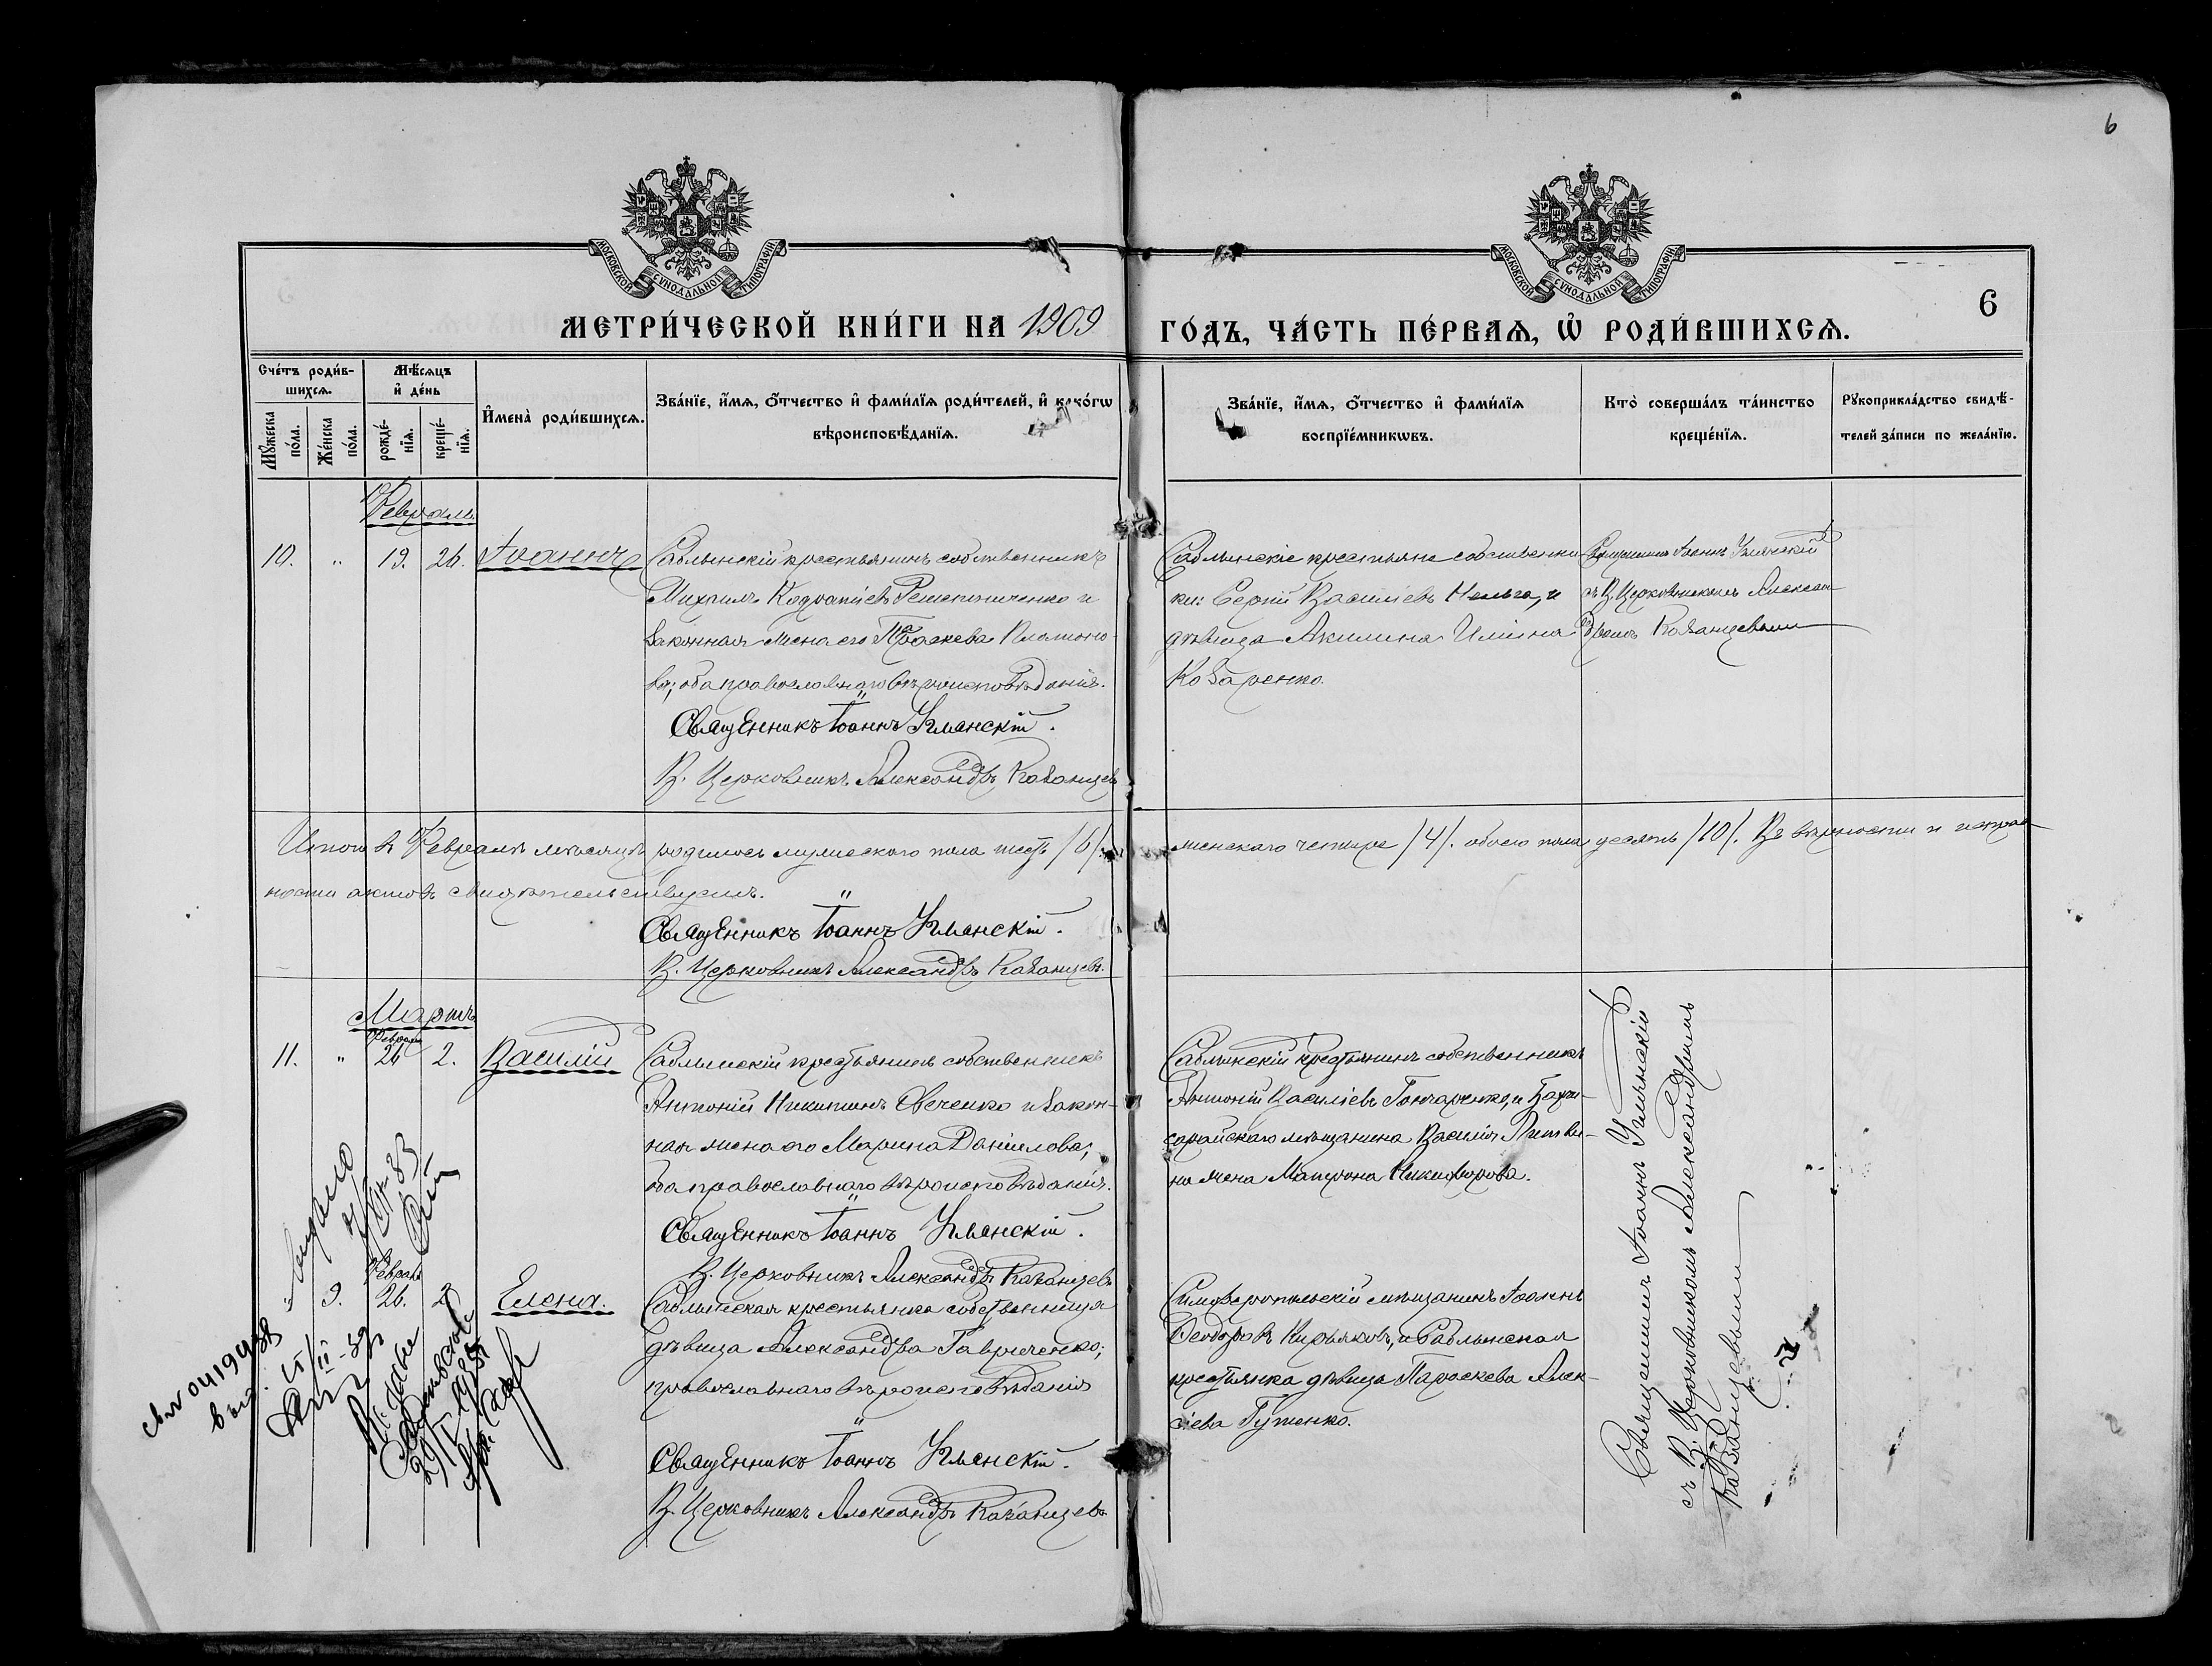 6
МОСКОВСКОЙ СѴНОДАЛЬНОЙ ТИПОГРАФІИ
МОСКОВСКОЙ СѴНОДАЛЬНОЙ ТИПОГРАФІИ
6
МЕТРИ́ЧЕСКОЙ КНИ́ГИ НА 1909
ГО́ДЪ, ЧА́СТЬ ПЕ́РВАѦ, Ѡ҆ РОДИ́ВШИХСѦ.
Сче́тъ роди́в-
шихсѧ.
Мꙋ́жеска по́ла.
Же́нска по́ла.
Мѣ́сѧцъ
и҆ де́нь
рожде́-
нїѧ.
креще́-
нїѧ.
И҆мена̀ роди́вшихсѧ.
Зва́нїе, и҆́мѧ, ѻ҆́тчество и҆ фами́лїѧ роди́телей, и҆ како́гѡ
вѣроисповѣ́данїѧ.
Зва́нїе, и҆́мѧ, ѻ҆́тчество и҆ фами́лїѧ
воспрїе́мникѡвъ.
Кто̀ соверша́лъ та́инство
креще́нїѧ.
Рꙋкоприкла́дство свидѣ́-
телей за́писи по жела́нїю.
Февраль
10. " 19. 26. Іоаннъ
Саблынскій крестьянинъ собственникъ
Михаилъ Решетниченко и
законная жена его Параскева Платоно-
ва; оба православнаго вѣроисповѣданія.
Священникъ Іоаннъ Уманскій.
В. Церковникъ Александръ Казанцевъ
Саблынскіе крестьяне собственни-
ки: Сергій Василіевъ и
дѣвица Акилина Иліина
Козаренко.
Священникъ Іоаннъ Уманскій
съ В. Церковникомъ Алексан-
дромъ Казанцевымъ
Итого въ Февралѣ мѣсяцѣ родилось мужескаго пола шесть /6/.
женскаго четыре /4/. обоего пола десять /10/. Въ вѣрности и исправ-
ности актовъ свидѣтельствуемъ.
Священникъ Іоаннъ Уманскій.
В. Церковникъ Александръ Казанцевъ.
Мартъ
Февраля
11. " 26 2. Василій
Саблынскій крестьянинъ собственникъ
Антоній Никитинъ Овченко и закон-
ная жена его Марина Даніилова;
оба православнаго вѣроисповѣданія.
Священникъ Іоаннъ Уманскій.
В. Церковникъ Александръ Казанцевъ
Саблынскій крестьянинъ собственникъ
Антоній Василіевъ Гончаренко, и Бахчи-
сарайскаго мѣщанина Василія Литви-
на жена Матрона Никифорова.
Священникъ Іоаннъ Уманскій
съ В. Церковникомъ Александромъ
Казанцевымъ
Февраля
" 9. 26. 2 Елена.
Саблынская крестьянка собственница
дѣвица Александра Гавриченко;
православнаго вѣроисповѣданія
Священникъ Іоаннъ Уманскій.
В. Церковникъ Александръ Казанцевъ
Симферопольскій мѣщанинъ Іоаннъ
Ѳеодоровъ Кирьяковъ, и Саблынская
крестьянка дѣвица Параскева Алек-
сіева Гутенко.